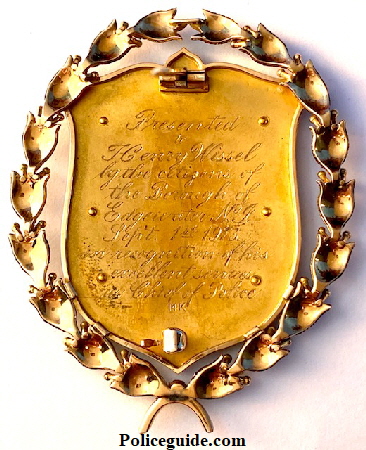 Presented
to
J. Henry Wissel
by the citizens of
the Borough of
Edgewater N.J.
Sept. 1st 1905
in recognition of his
excellent services
as Chief of Police
Policeguide.com